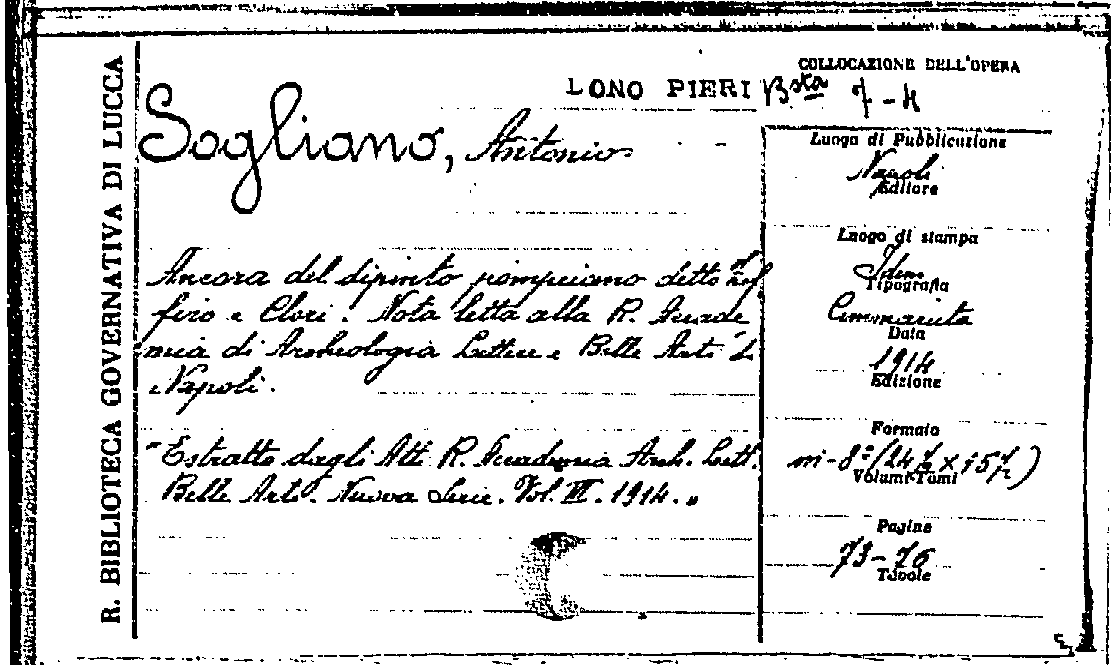 R. BIBLIOTECA GOVERNATIVA DI LUCCA
LONO PIERI
COLLOCAZIONE DELL'OPERA
Bsta 7-4
Sogliano, Antonio
Ancora del dipinto pompeiano detto di Zef
firo e Clori. Nota letta alla R. Accade
mia di Archeologia Lettere e Belle Arti di
Napoli.
"Estratto dagli Atti R. Accademia Arch. Lett.
Belle Arti. Nuova Serie. Vol. III. 1914."
Luogo di Pubblicazione
Napoli
Editore
Luogo di stampa
Idem
Tipografia
Cimmaruta
Data
1914
Edizione
Formato
in-8° (24½ x 15½)
Volumi-Tomi
Pagine
73-76
Tavole